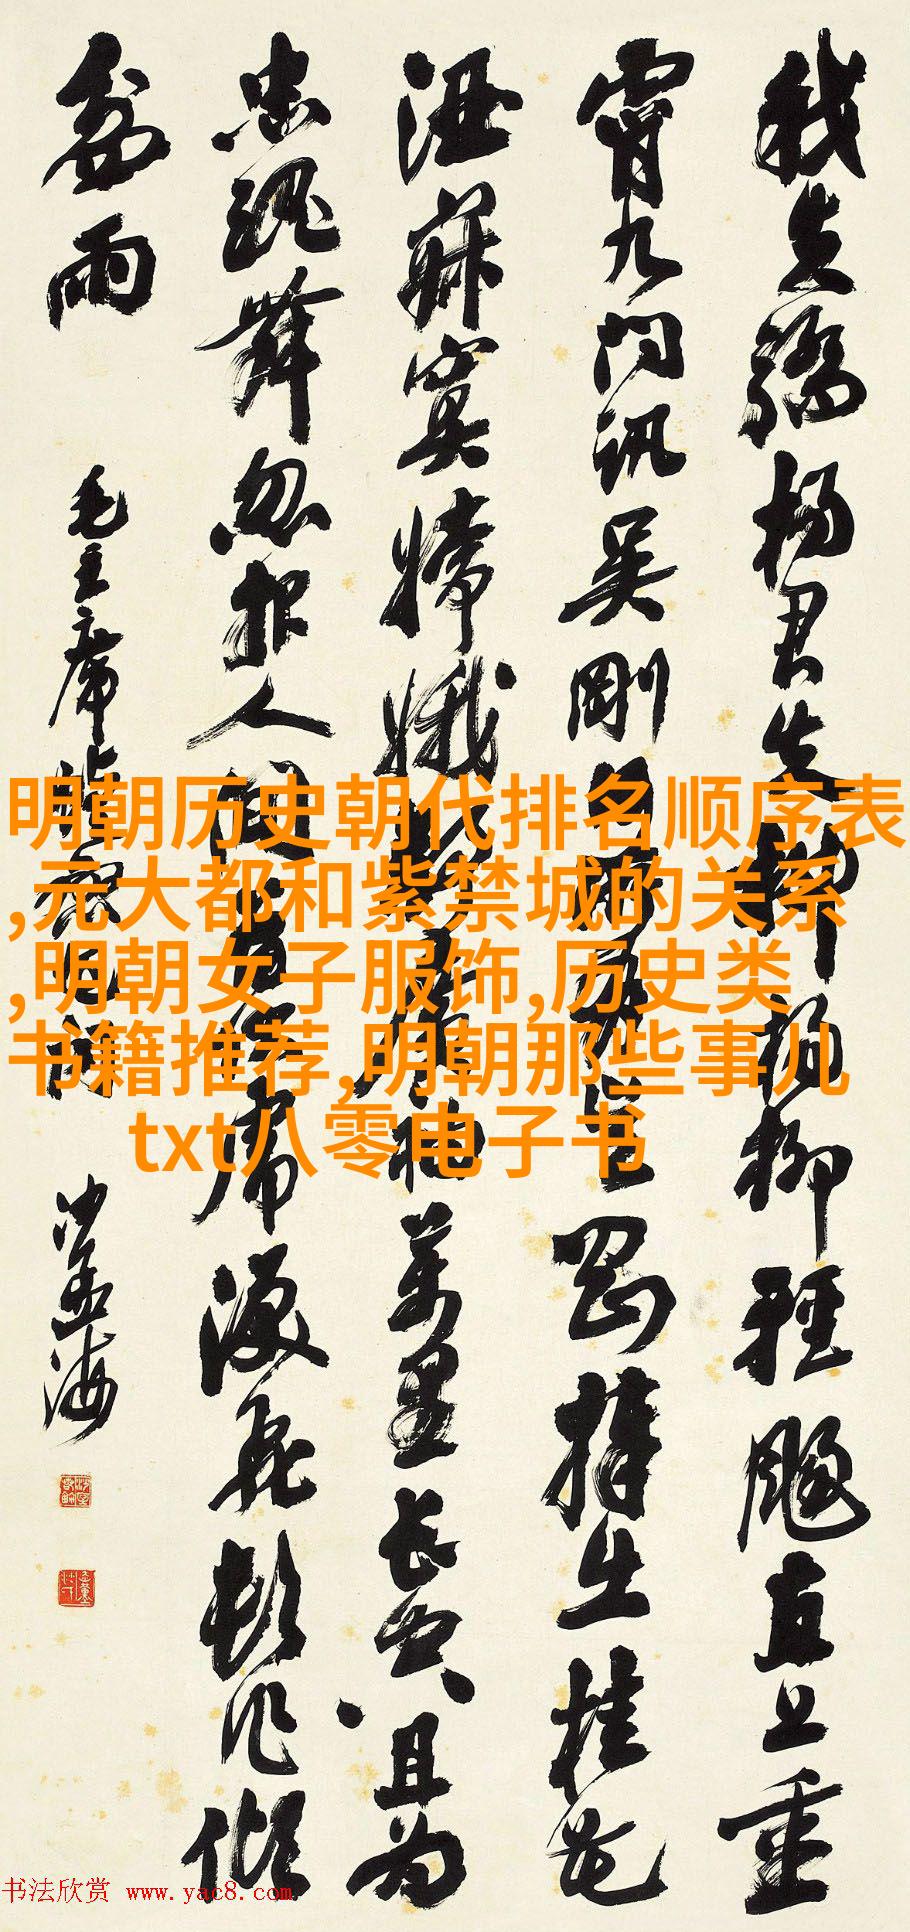 我失驕楊君失柳楊柳輕飏直上重
霄九問訊吳剛捧出桂花
酒寂寞嫦娥袖万里长空且为
忠魂舞忽报人虎淚飛頓作傾
盆雨
毛主席
沙孟海
明朝历史朝代排名顺序表
,元大都和紫禁城的关系
,明朝女子服饰,历史类
书籍推荐,明朝那些事儿
txt八零电子书
书法欣赏 www.yac8.com